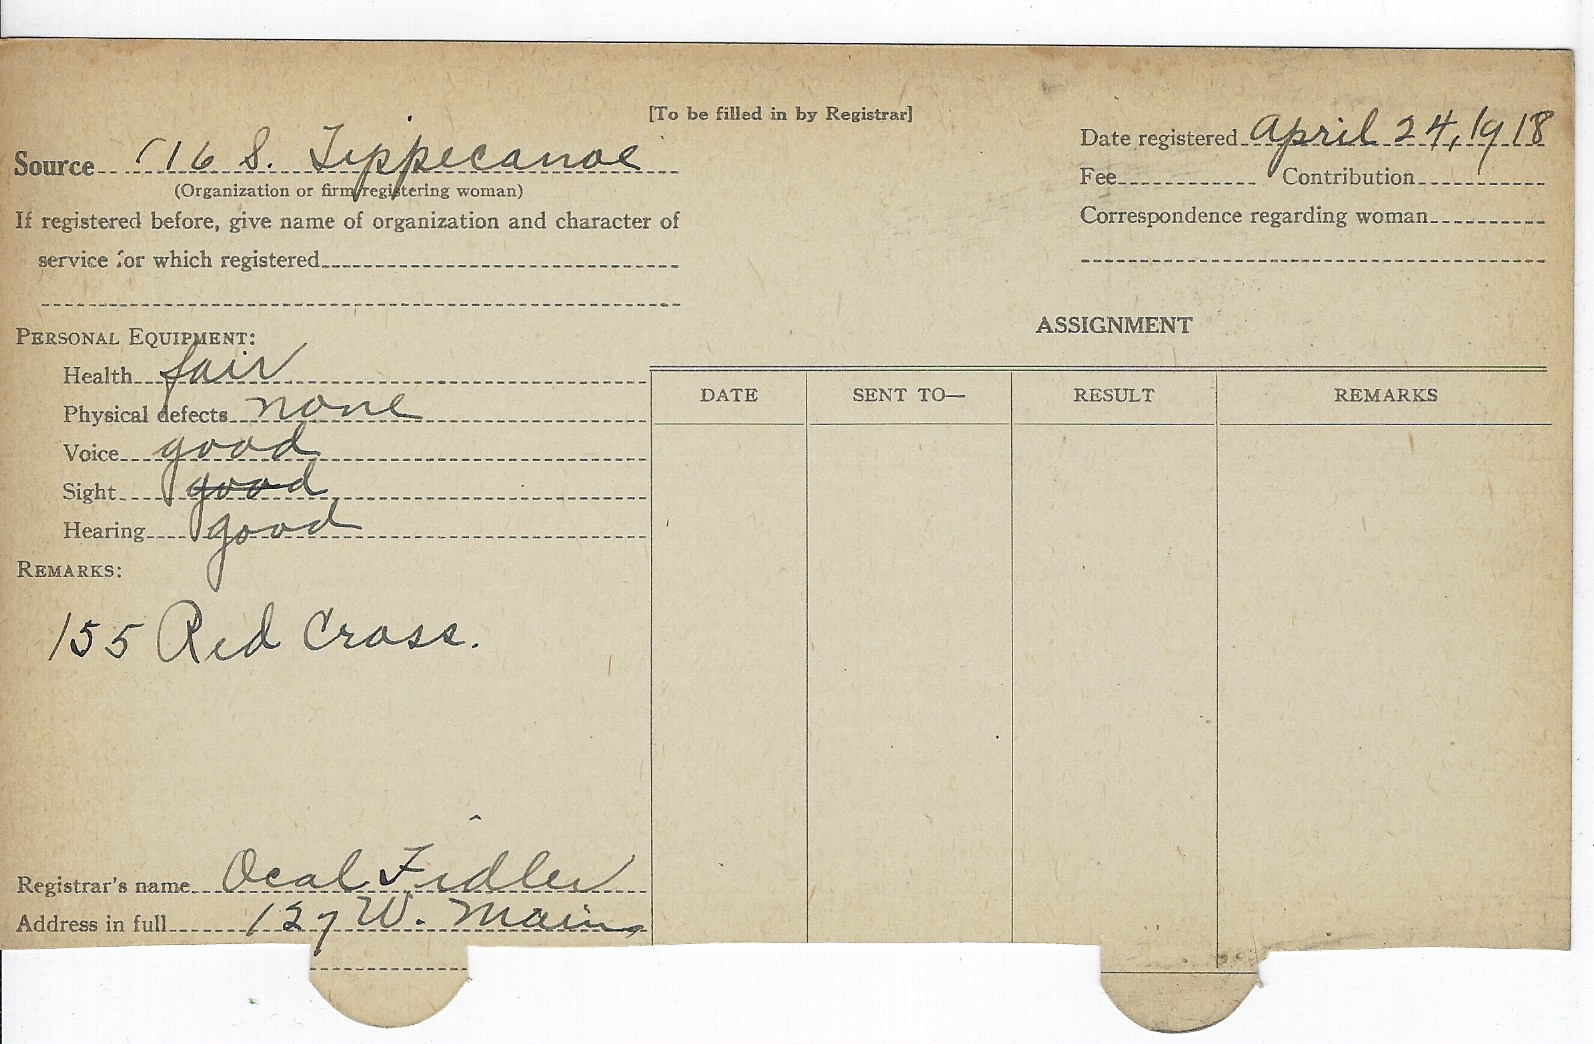 [To be filled in by Registrar]
Source 716 S. Tippecanoe
(Organization or firm registering woman)
If registered before, give name of organization and character of
service for which registered
Date registered April 24, 1918
Fee Contribution
Correspondence regarding woman
PERSONAL EQUIPMENT:
Health fair
Physical defects none
Voice good
Sight good
Hearing good
REMARKS:
155 Red Cross.
Registrar's name Ocal Fidler
Address in full 127 W. Main
ASSIGNMENT
DATE SENT TO— RESULT REMARKS